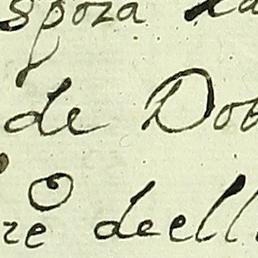 spoza
de Dob
re deell